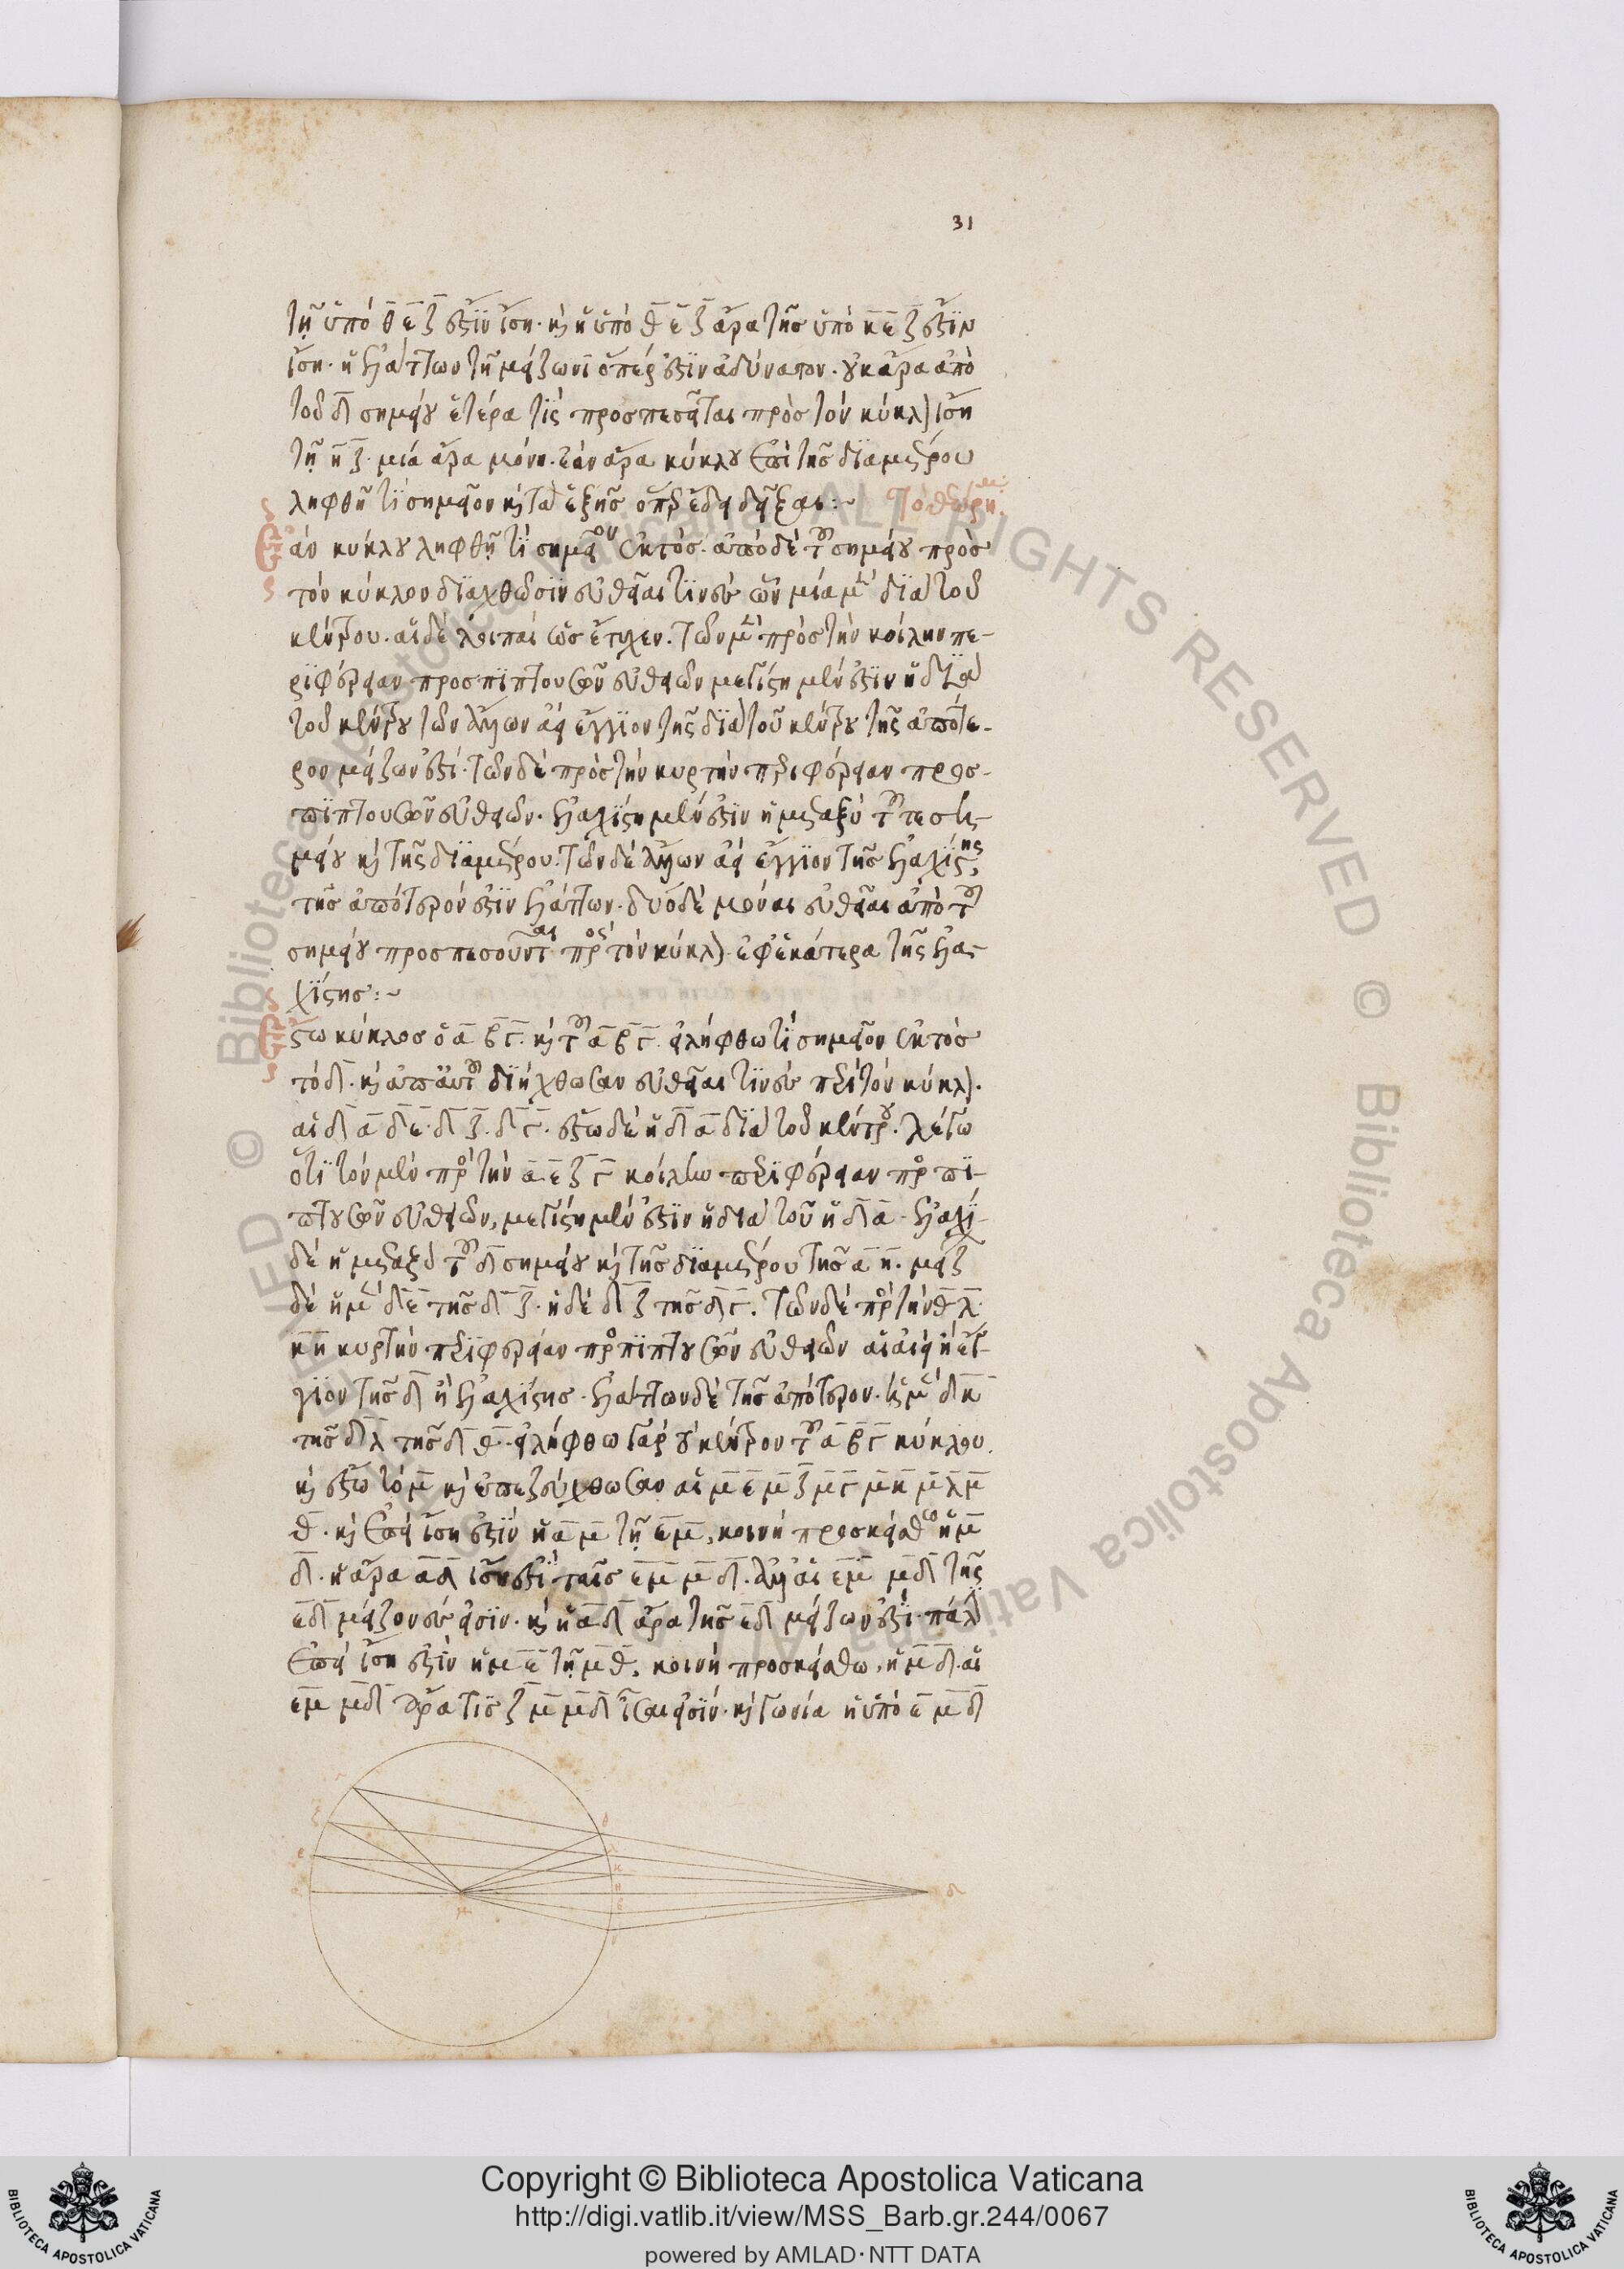 31
τῆ ὑπό θ ε ζ ἐστΐν ἴση· κ ἡ ὑπό θ ε ζ ἄρα τῆσ ὑπό κ ε ζ ἐστΐν
ἴση· ἡ ἐλάττων τῆ μείζωνι ὅπέρ ἐστΐν ἀδύνατον· οὐκ ἄρα ἀπὸ
τοῦ δ σημείου ἑτέρα τὶς προσπεσεῖται πρὸσ τὸν κύκλ) ἴση
τῆ η ζ· μία ἄρα μόνη· ἐὰν ἄρα κύκλου ἐπὶ τῆσ διαμέτρου
ληφθῆ τὶ σημεῖον κ τὰ ἑξῆσ ὅπερ ἔδει δεῖξαι:~
Εὰν κύκλου ληφθῆ τὶ σημεῖον ἐκτόσ· ἀπὸ δὲ τοῦ σημείου πρὸσ
τὸν κύκλον διαχθῶσΐν εὐθεῖαι τΐνὲσ ὧν μία μὲν διὰ τοῦ
κέντρου· αἱ δὲ λοιπαὶ ὡσ ἔτυχεν· τῶν μὲν πρὸσ τὴν κοίλην πε-
ρΐφέρειαν προσπΐπτουσῶν εὐθειῶν μεγΐστη μέν ἐστΐν ἡ διὰ
τοῦ κέντρου τῶν ἄλλων ἀεὶ ἔγγιον τῆς διὰ τοῦ κέντρου τῆς ἀπότε-
ρον μείζων ἐστί· τῶν δὲ πρὸσ τὴν κυρτὴν περιφέρειαν προσ-
πΐπτουσῶν εὐθειῶν· ἐλαχΐστη μέν ἐστΐν ἡ μεταξύ τοῦ τε ση-
μείου κ τῆς διαμέτρου· τῶν δὲ ἄλλων ἀεὶ ἔγγιον τῆσ ἐλαχΐστης
τῆσ ἀπότερόν ἐστΐν ἐλάττων· δύο δὲ μόναι εὐθεῖαι ἀπὸ τοῦ
σημείου προσπεσοῦνται πρὸς τὸν κύκλ) ἐφ ἑκάτερα τῆς ἐλα-
χΐστησ:~
Εστω κύκλοσ ὁ α β γ· κ τοῦ α β γ εἰλήφθω τὶ σημεῖον ἐκτὸσ
τὸ δ· κ ἀπ αὐτοῦ διήχθωσαν εὐθεῖαι τΐνὲσ πρὸσ τὸν κύκλ)·
αἱ δ α δ ε· δ ζ· δ γ· ἔστω δὲ ἡ δ α διὰ τοῦ κέντρου· λέγω
ὅτΐ τῶν μὲν πρὸσ τὴν α ε ζ γ κοίλην περΐφέρειαν πρὸσ πΐ-
πτουσῶν εὐθειῶν, μεγΐστη μέν ἐστΐν ἡ διὰ τοῦ ἡ δ α· ἐλαχΐ
δὲ ἡ μεταξὺ τοῦ δ σημείου κ τῆσ διαμέτρου τῆσ α η· μείζ
δὲ ἡ μὲν δ ε τῆσ δ ζ· ἡ δὲ δ ζ τῆσ δ γ· τῶν δὲ πρὸσ τὴν θ λ
κ η κυρτὴν περΐφερείαν πρὸσπΐπτουσῶν εὐθειῶν αἱ αἰεὶ ἡ ἔγ-
γΐον τῆσ δ η ἐλαχΐστησ· ἐλάττων δὲ τῆσ ἀπότερον· ἡ μὲν δ κ
τῆσ δ λ τῆσ δ θ· εἰλήφθω γὰρ οὐ κέντρον τοῦ α β γ κύκλου·
κ ἔστω τὸ μ κ ἐπεζεύχθωσαν αἱ μ ε μ ζ μ γ μ κ μ λ μ
θ· κ ἐπεὶ ἴση ἐστΐν ἡ α μ τῆ ε μ, κοινὴ προσκείσθω ἡ μ
δ· ἡ ἄρα α δ ἴση ἐστὶ ταῖσ ε μ μ δ· ἀλλ αἱ ε μ μ δ τῆς
ε δ μείζονέσ εἰσΐν· κ ἡ α δ ἄρα τῆσ ε δ μείζων ἐστΐ· πάλΐ
ἐπεὶ ἴση ἐστΐν ἡ μ ε τῆ μ θ, κοινὴ προσκείσθω, ἡ μ δ· αἱ
ε μ μ δ ἄρα τῖσ ζ μ μ δ ἴσαι εἰσΐν· κ γωνία ἡ ὑπό ε μ δ
ζ
ε
θ
κ
η
μ
δ
Copyright © Biblioteca Apostolica Vaticana
http://digi.vatlib.it/view/MSS_Barb.gr.244/0067
powered by AMLAD·NTT DATA
BIBLIOTECA APOSTOLICA VATICANA
BIBLIOTECA APOSTOLICA VATICANA